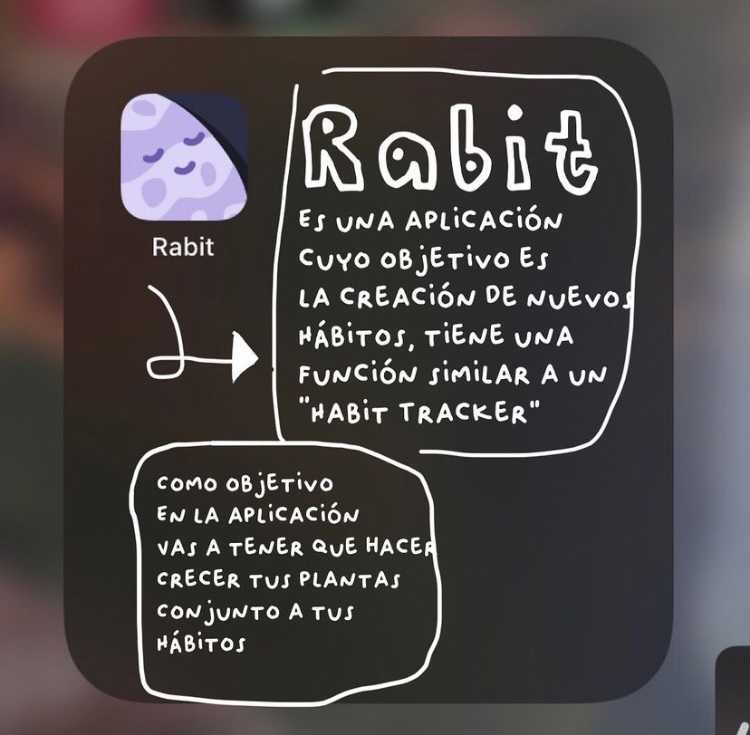 Rabit
Rabit
Es una aplicación
cuyo objetivo es
la creación de nuevos
hábitos, tiene una
función similar a un
"habit tracker"
como objetivo
en la aplicación
vas a tener que hacer
crecer tus plantas
conjunto a tus
hábitos